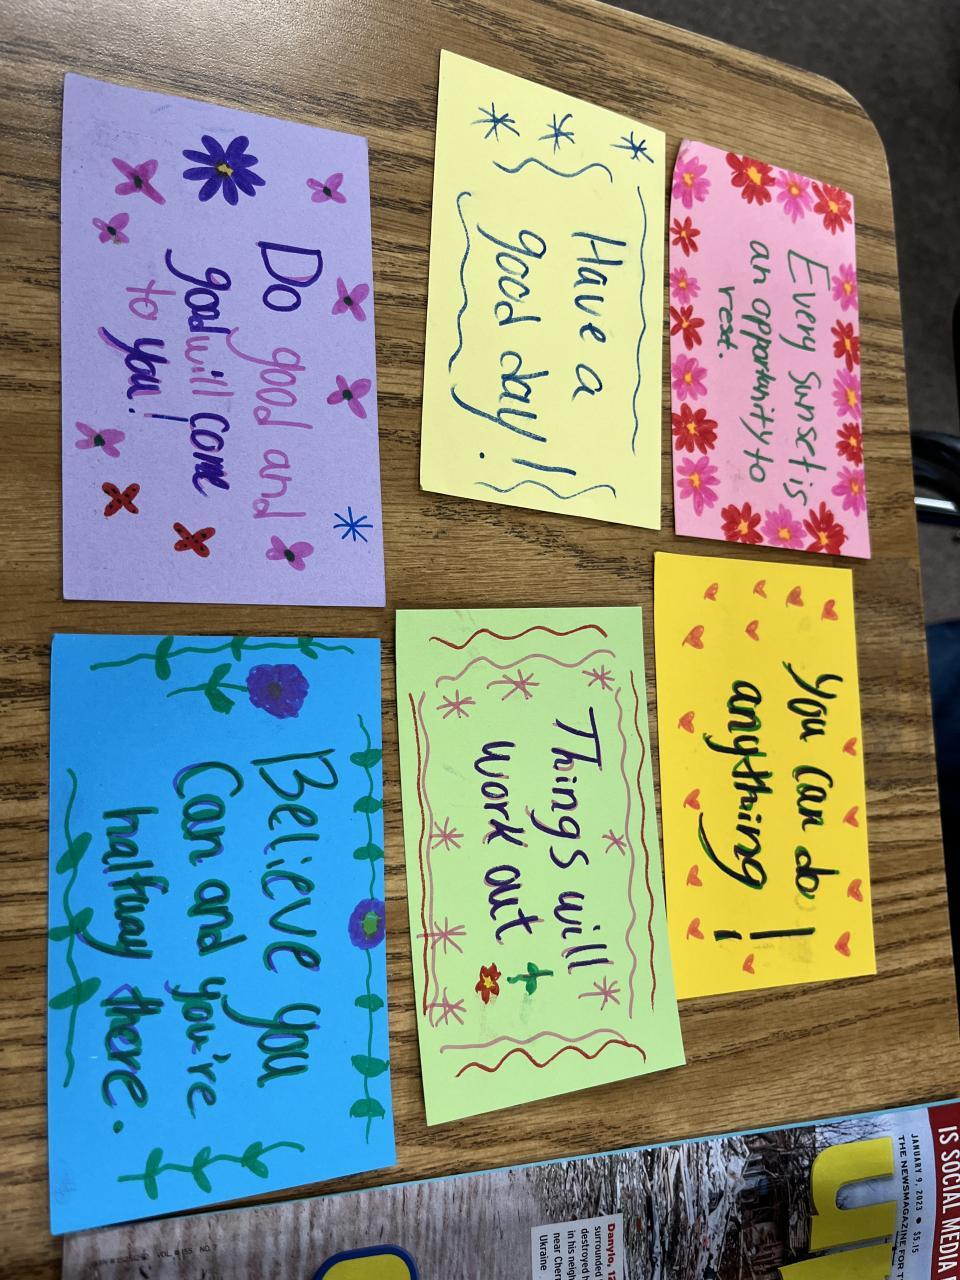 Every sunset is
an opportunity to
rest.
You can do
anything!
Have a
good day!
Things will
work out
Do good and
good will come
to you!
Believe you
Can and you're
halfway there.
IS SOCIAL MEDIA
JANUARY 9, 2023 • $5.15
THE NEWSMAGAZINE FOR
Danylo, 12
surrounded
destroyed
in his neigh
near Cher
Ukraine
VOL. 155 NO.